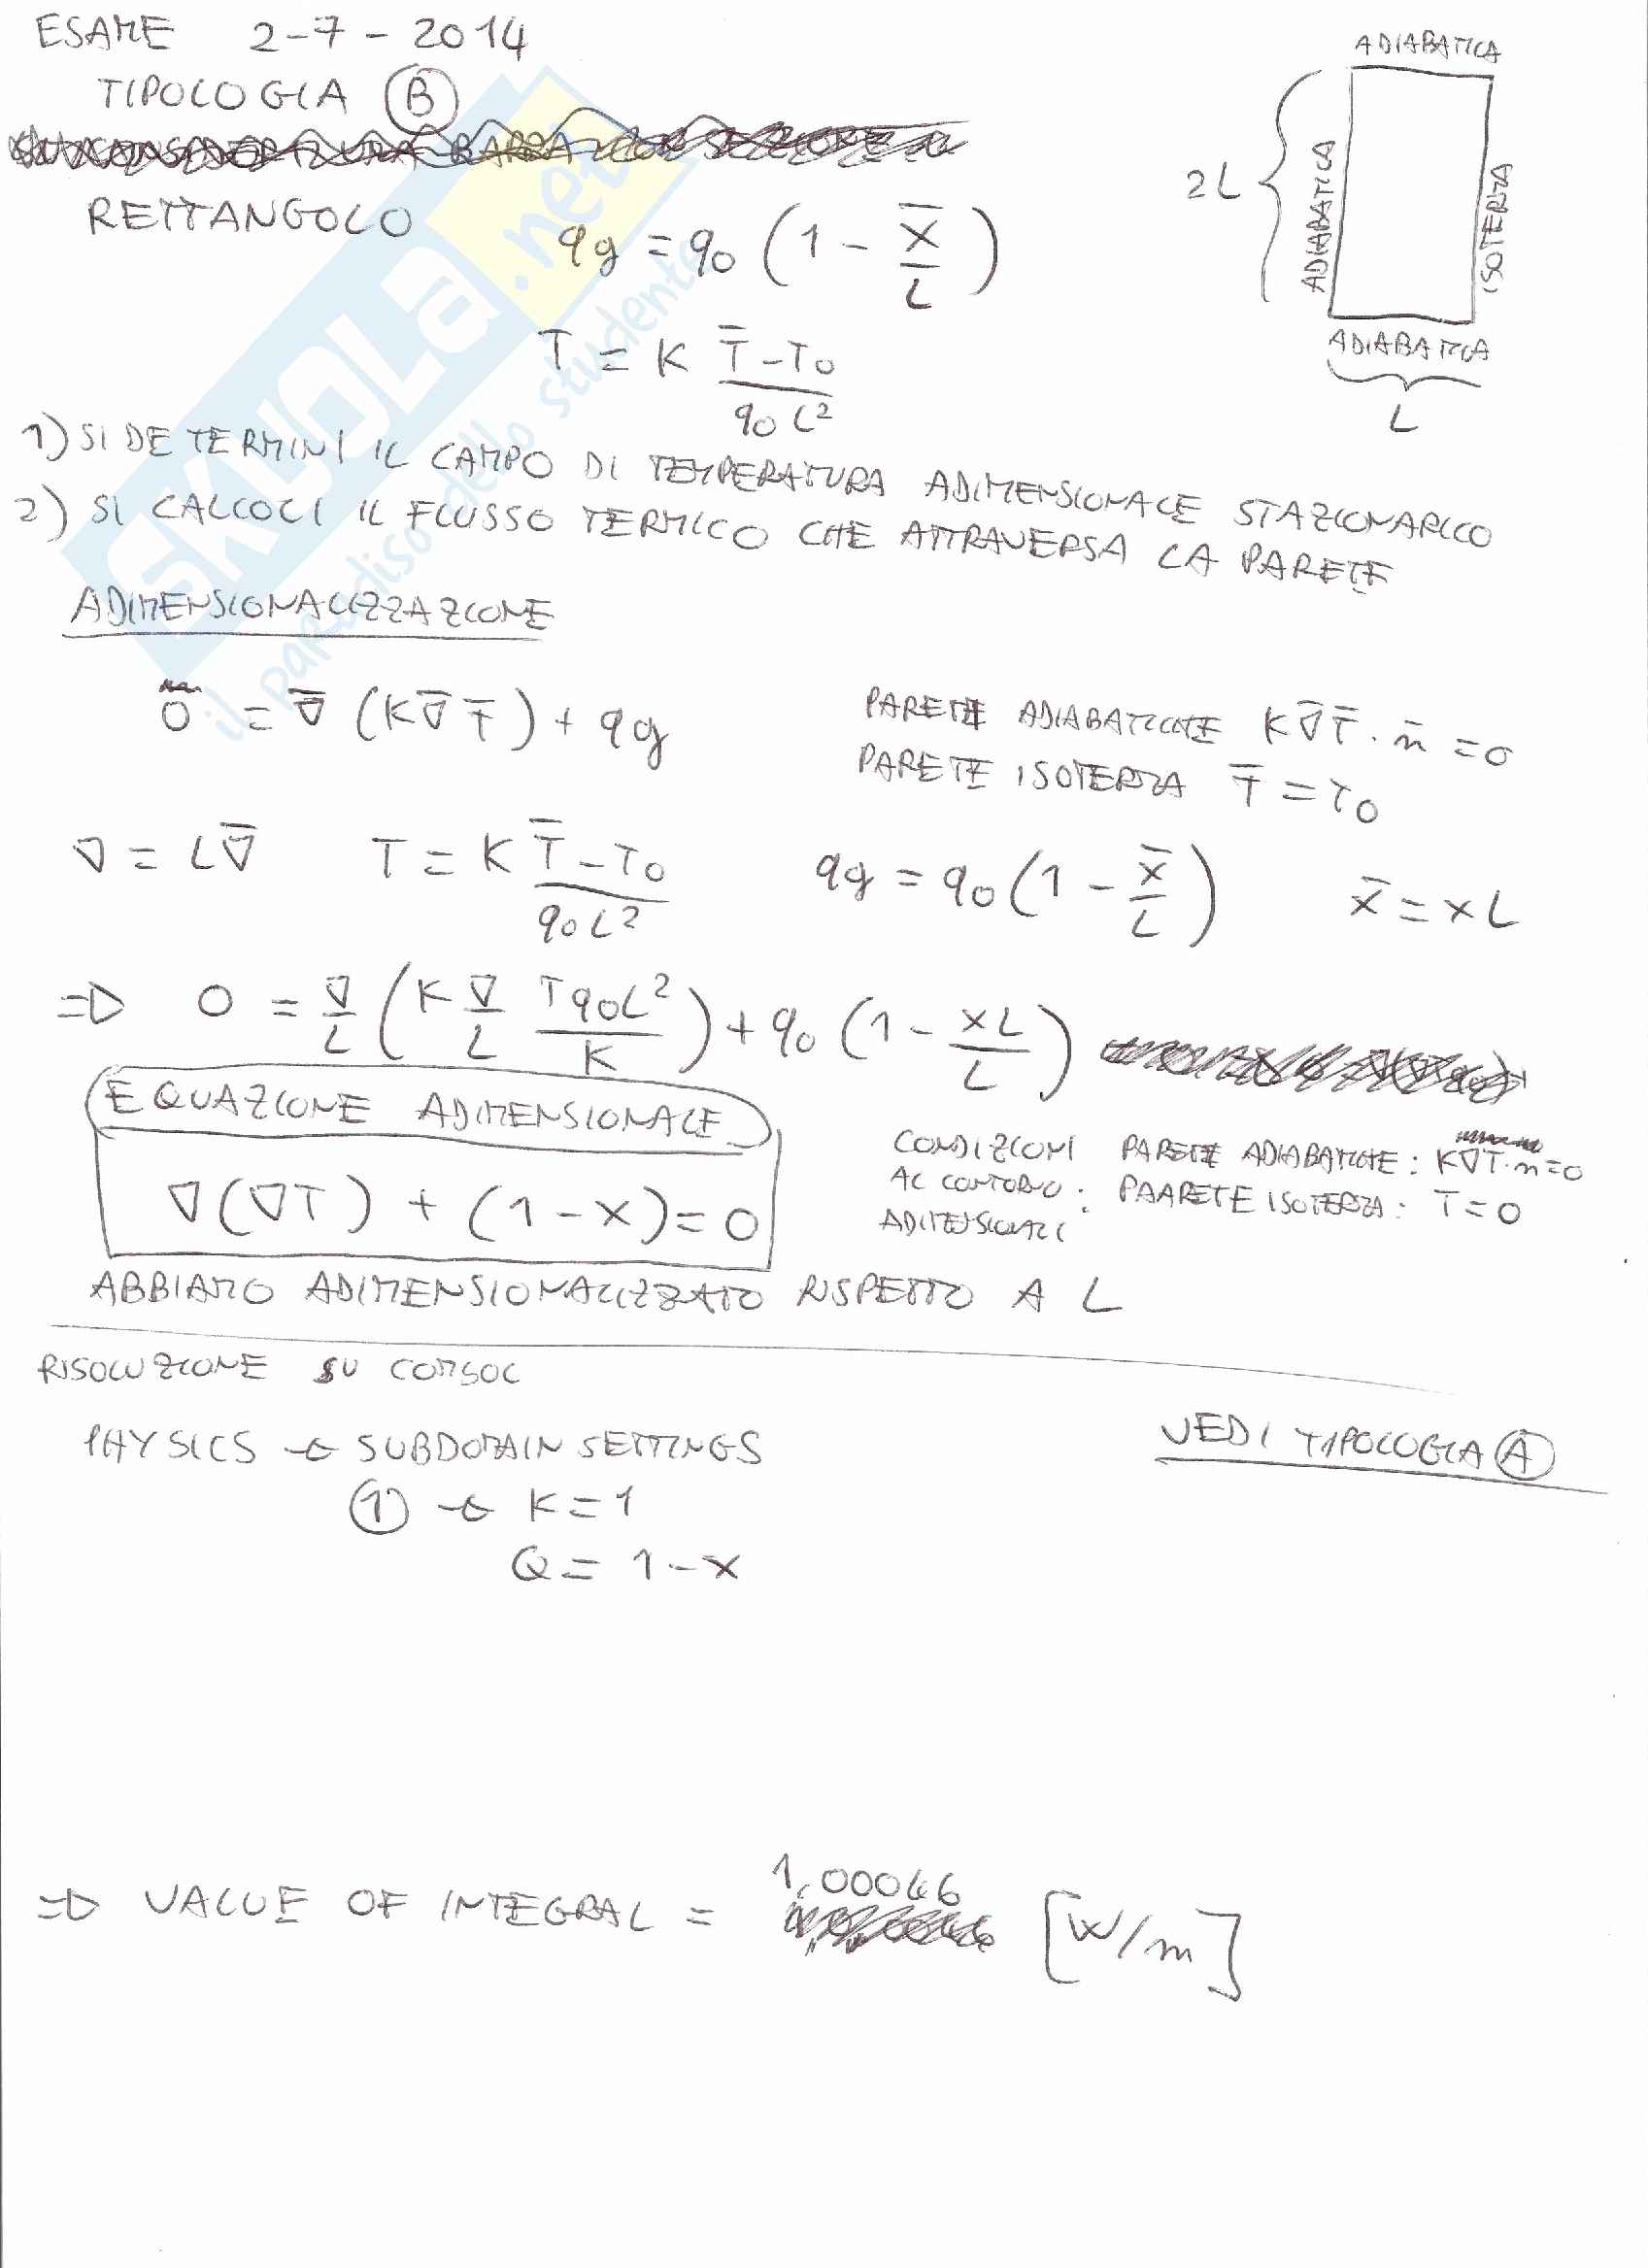 ESAME 2-7-2014
TIPOLOGIA (B)
RETTANGOLO
qg = q0 (1 - x̄/L)
T = K (T̄ - T0)/(q0 L²)
ADIABATICA
2L
ADIABATICA
ISOTERMA
ADIABATICA
L
1) SI DETERMINI IL CAMPO DI TEMPERATURA ADIMENSIONALE STAZIONARIO
2) SI CALCOLI IL FLUSSO TERMICO CHE ATTRAVERSA LA PARETE
ADIMENSIONALIZZAZIONE
0 = ∇̄ (K ∇̄ T̄) + qg
PARETE ADIABATICHE K ∇̄ T̄ · n̄ = 0
PARETE ISOTERMA T̄ = T0
∇ = L∇̄ T = K (T̄ - T0)/(q0 L²) qg = q0 (1 - x̄/L) x̄ = xL
=> 0 = ∇/L (K ∇/L T q0 L²/K) + q0 (1 - xL/L)
EQUAZIONE ADIMENSIONALE
∇(∇T) + (1 - x) = 0
CONDIZIONI AL CONTORNO ADIMENSIONALI :
PARETE ADIABATICHE : K∇T · n = 0
PAARETE ISOTERMA : T = 0
ABBIAMO ADIMENSIONALIZZATO RISPETTO A L
RISOLUZIONE SU COMSOL
PHYSICS → SUBDOMAIN SETTINGS
(1) → K = 1
Q = 1 - x
VEDI TIPOLOGIA (A)
=> VALUE OF INTEGRAL = 1,00046 [W/m]
SKUOLA.net
il paradiso dello studente